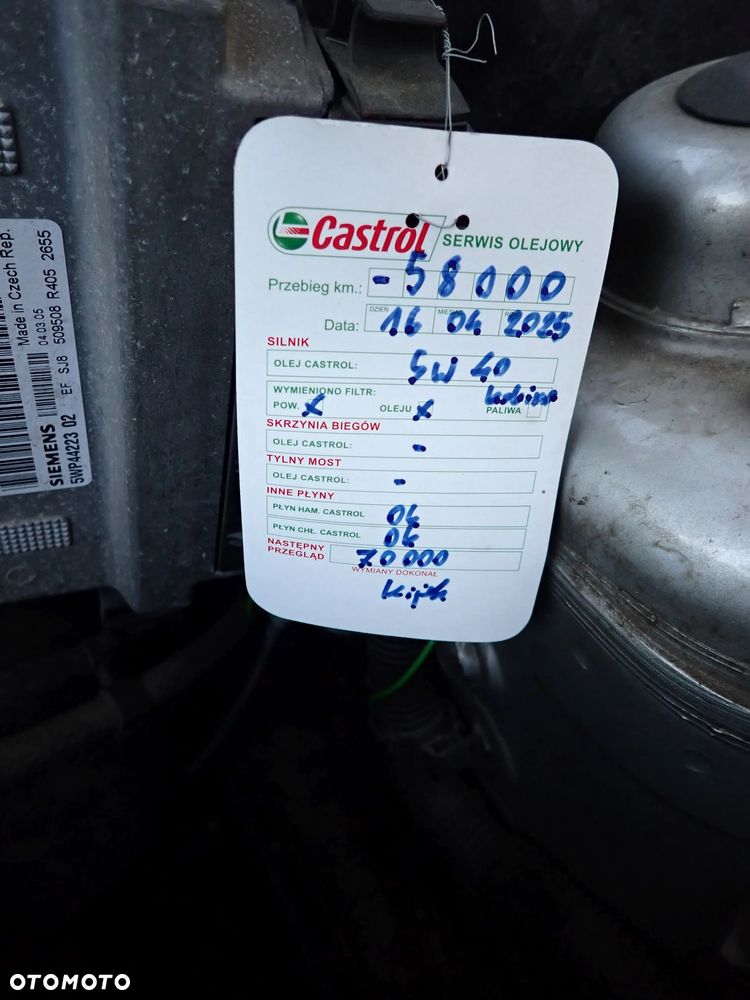 Made in Czech Rep.
04.03.05
SJ8 509508 R405 2655
EF
SIEMENS
5WP44223 02
Castrol SERWIS OLEJOWY
Przebieg km.: - 58000
DZIEŃ MIESIĄC
Data: 16 04 2025
SILNIK
OLEJ CASTROL: 5W 40
WYMIENIONO FILTR:
POW. X OLEJU X PALIWA
SKRZYNIA BIEGÓW
OLEJ CASTROL: -
TYLNY MOST
OLEJ CASTROL: -
INNE PŁYNY
PŁYN HAM. CASTROL Ok
PŁYN CHŁ. CASTROL Ok
NASTĘPNY
PRZEGLĄD 70 000
WYMIANY DOKONAŁ
OTOMOTO